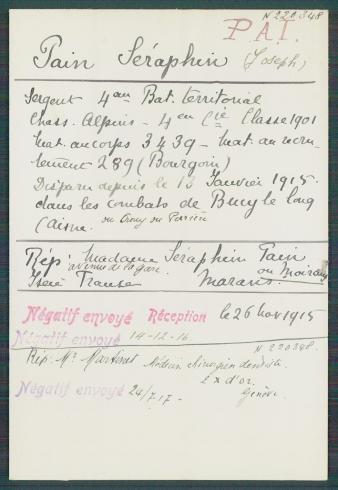 N 220348
P.A.I.
Pain Séraphin (Joseph)
Sergent 4eme Bat. territorial
Chass. Alpins - 4em Cie Classe 1901
Mat. au corps 3439 - Mat. au recru-
tement 289 (Bourgoin)
Disparu depuis le 13 Janvier 1915.
dans les combats de Bucy le long
(Aisne. ou Crouy ou Perrière
Rép: Madame Séraphin Pain
avenue de la gare. ou Moirans
Isère France Marans.
Négatif envoyé Réception le 26 Nov 1915
Négatif envoyé 14-12-16.
N 220348.
Rép. Mr Médecin chirurgien dentiste
2 x d'or.
Négatif envoyé 24/7 17 - Genève.